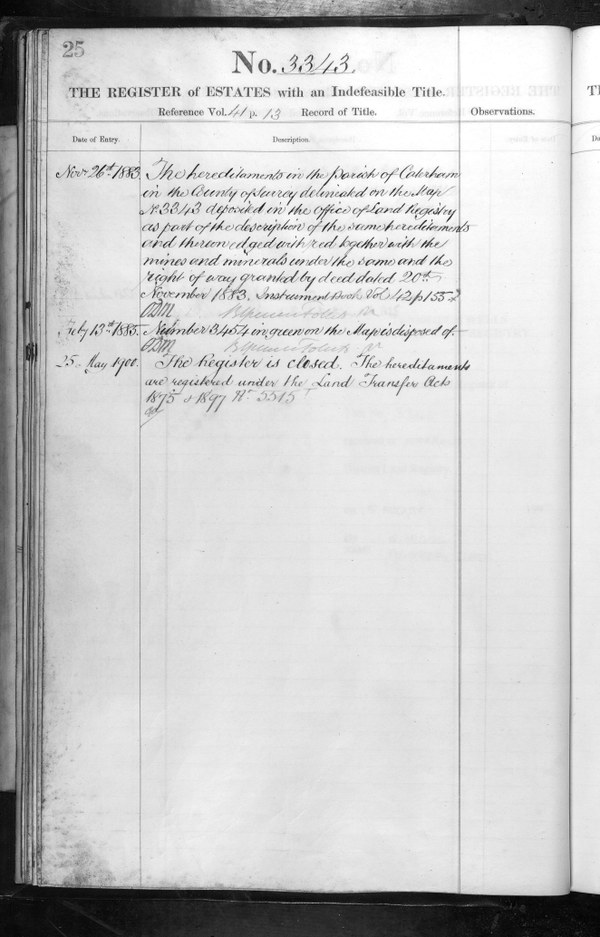 25
No. 3343.
THE REGISTER of ESTATES with an Indefeasible Title.
Reference Vol. 41 p. 13 Record of Title.
Observations.
Date of Entry.
Description.
Novr 26th 1883.
The hereditaments in the Parish of Caterham
in the County of Surrey delineated on the Map
No 3343 deposited in the Office of Land Registry
as part of the description of the same hereditaments
and thereon edged with red together with the
mines and minerals under the same and the
right of way granted by deed dated 20th
November 1883. Instrument Book Vol 42 p 155
July 13th 1885.
Number 3454 in green on the Map is disposed of.
25 May 1900.
The Register is closed. The hereditaments
are registered under the Land Transfer Acts
1875 & 1897 No 5515